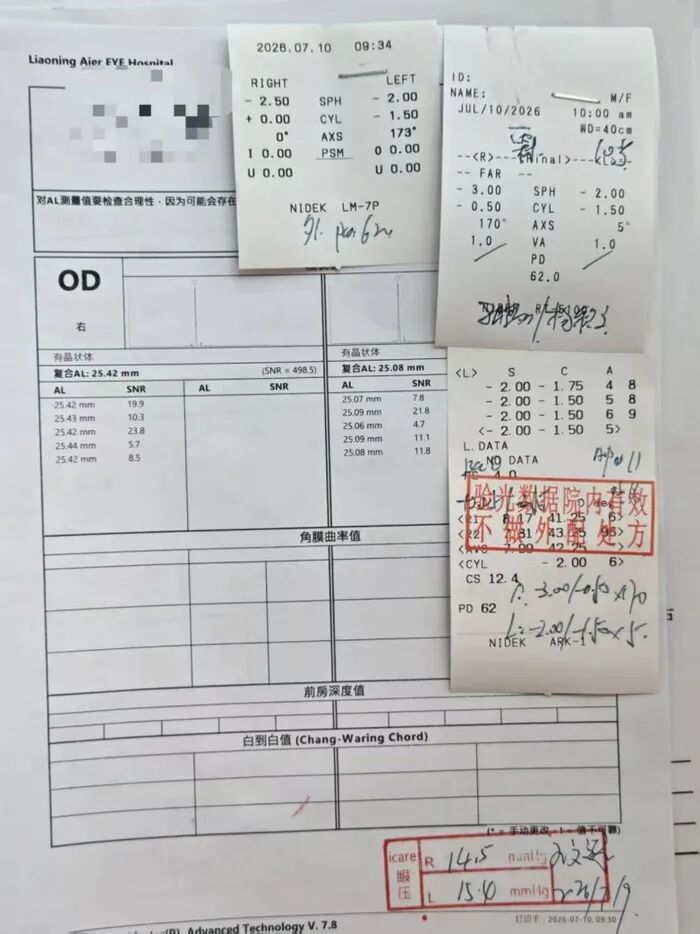 Liaoning Aier EYE Hospital
对AL测量值要检查合理性，因为可能会存在
OD
右
有晶状体
复合AL: 25.42 mm (SNR = 498.5)
AL SNR AL SNR
25.42 mm 19.9
25.43 mm 10.3
25.42 mm 23.8
25.44 mm 5.7
25.42 mm 8.5
有晶状体
复合AL: 25.08 mm
AL SNR
25.07 mm 7.8
25.09 mm 21.8
25.06 mm 4.7
25.09 mm 11.1
25.08 mm 11.8
角膜曲率值
前房深度值
白到白值 (Chang-Waring Chord)
(* = 手动更改 ! = 值不可靠)
icare
眼压
R 14.5 mmHg
L 15.0 mmHg
Advanced Technology V. 7.8
打印于: 2026-07-10, 09:30
2026.07.10 09:34
RIGHT LEFT
- 2.50 SPH - 2.00
+ 0.00 CYL - 1.50
0° AXS 173°
I 0.00 PSM O 0.00
U 0.00 U 0.00
NIDEK LM-7P
ID:
NAME: M/F
JUL/10/2026 10:00 am
WD=40cm
-- FAR --
- 3.00 SPH - 2.00
- 0.50 CYL - 1.50
170° AXS 5°
1.0 VA 1.0
PD
62.0
<L> S C A
- 2.00 - 1.75 4 8
- 2.00 - 1.50 5 8
- 2.00 - 1.50 6 9
<- 2.00 - 1.50 5>
L.DATA
NO DATA
验光数据院内有效
不做外配处方
<R1 8.17 41.25 6>
<R2 7.81 43.25 96>
<AVG 7.99 42.25 >
<CYL - 2.00 6>
CS 12.4
R: -3.00/-0.50×170
PD 62
L: -2.00/-1.50×5
NIDEK ARK-1